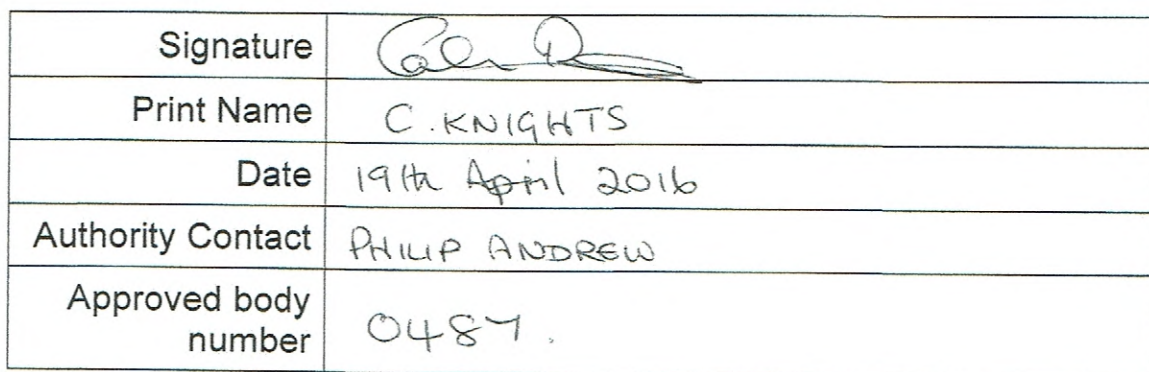 Signature
Print Name C. KNIGHTS
Date 19th April 2016
Authority Contact PHILIP ANDREW
Approved body
number 0487.